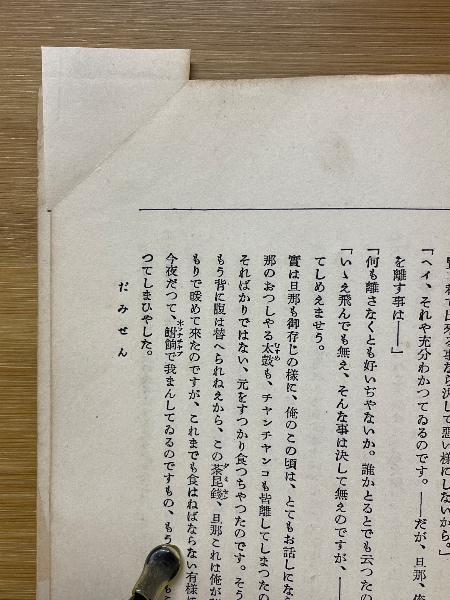 「ヘイ、それや充分わかつてゐるのです。――だが、旦那、俺
を離す事は――」
「何も離さなくとも好いぢやないか。誰かとるとでも云つたの
「いゝえ飛んでも無え、そんな事は決して無えのですが、――
てしめえませう。
實は旦那も御存じの様に、俺のこの頃は、とてもお話しになら
那のおつしやる太鼓も、チャンチャンコも皆離してしまつたの
そればかりではない、元をすつかり食つちやつたのです。そう
もう背に腹は替へられねえから、この茶昆錢、旦那これは俺が
もりで暖めて來たのですが、これまでも食はねばならない有樣
今夜だつて、餬飩で我まんしてゐるのですもの、もう
つてしまひやした。
だみせん